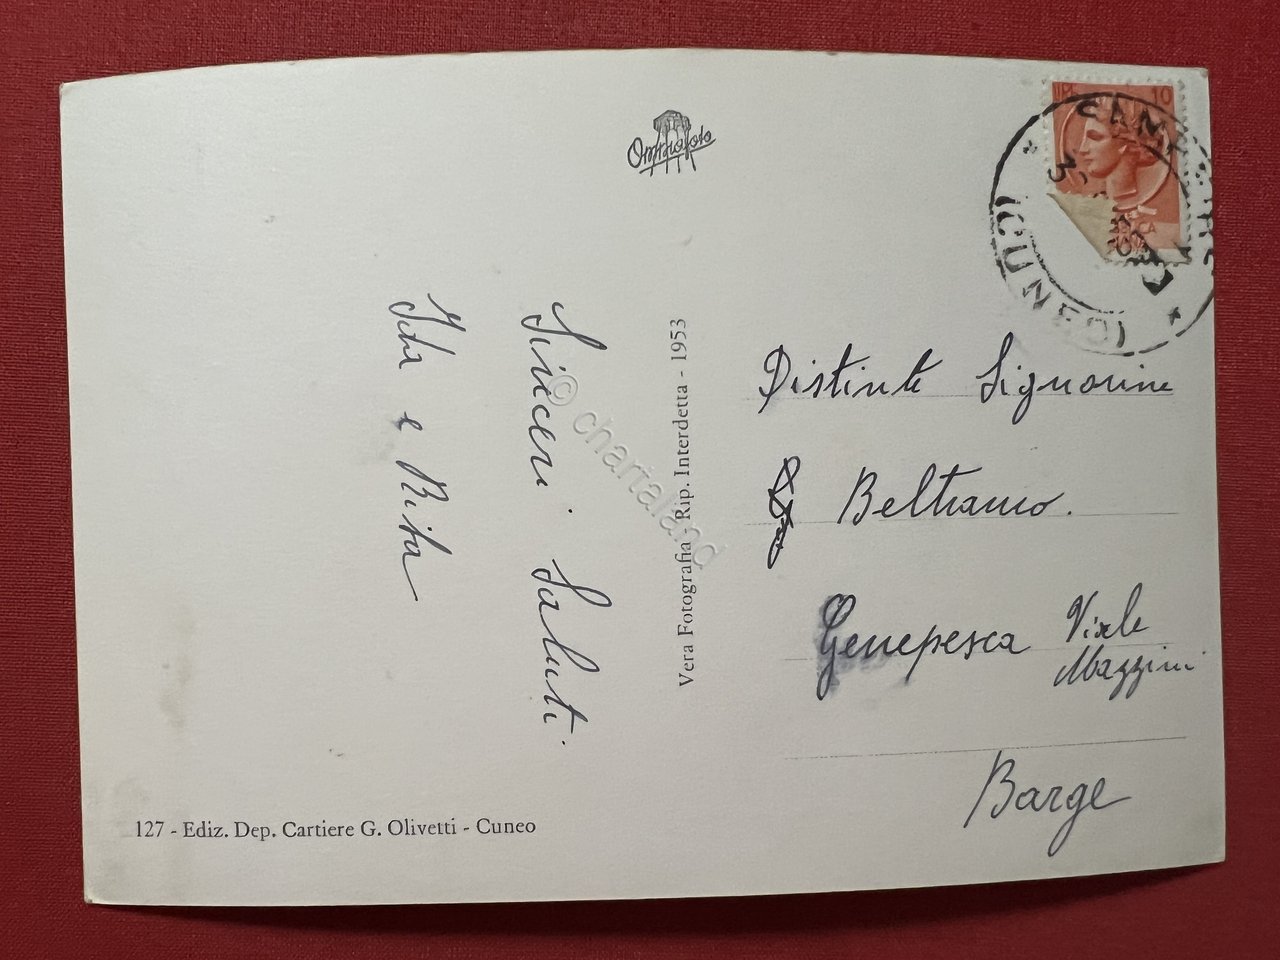 Omniafoto
LIRE 10
(CUNEO)
Sinceri Saluti.
Ida e Rita
Vera Fotografia - Rip. Interdetta - 1953
© chartaland
Distinte Signorine
Beltramo.
Genepesca Viale
Mazzini
Barge
127 - Ediz. Dep. Cartiere G. Olivetti - Cuneo